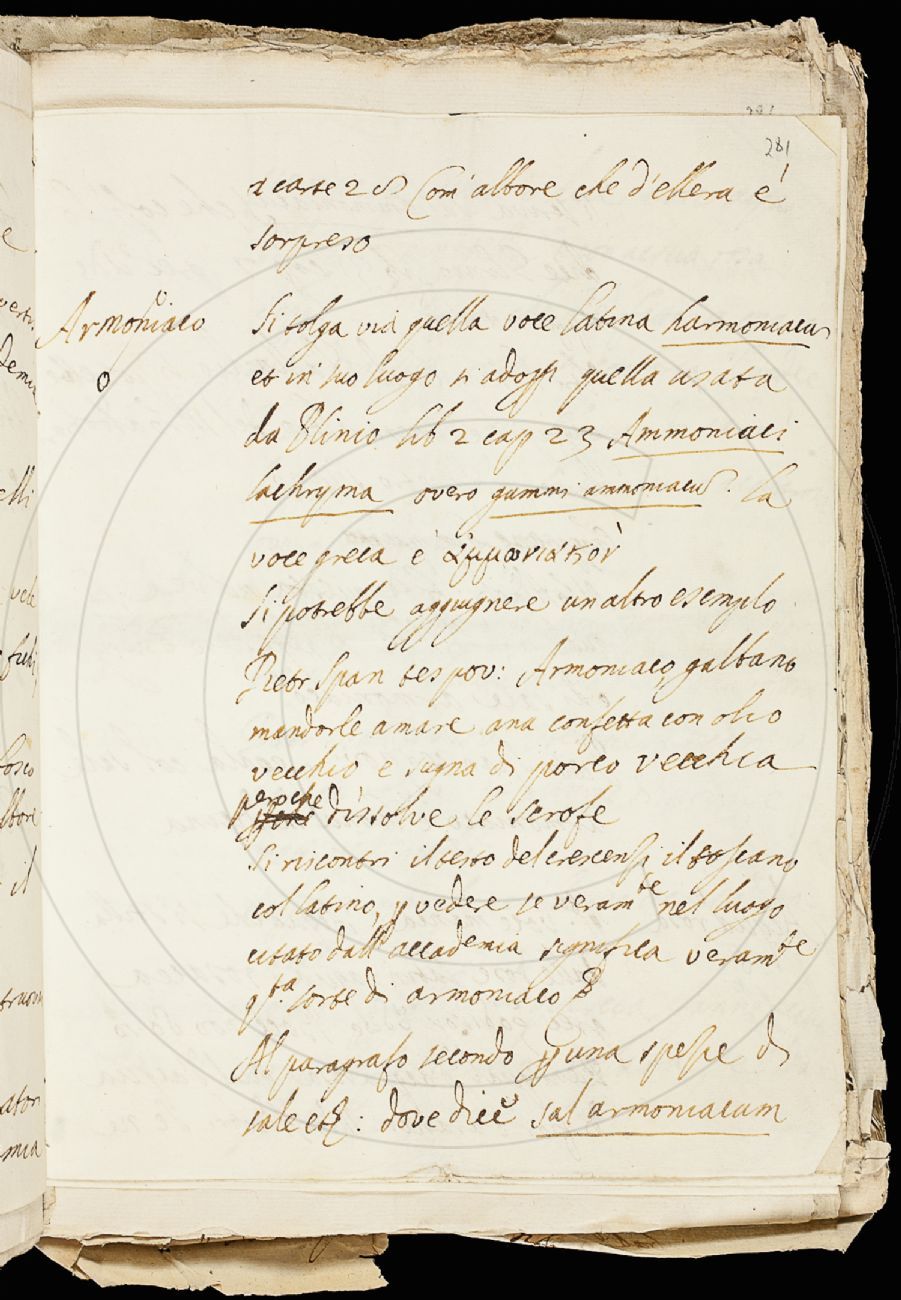 281
a carte 28 Com' albore che d'ellera é
sorpreso
Armoniaco
Si tolga via quella voce latina harmoniacus
et in suo luogo si adopri quella usata
da Plinio lib 2 cap 23 Ammoniaci
lachryma overo gummi ammoniacu. La
voce greca é ἀμμωνιακὸν
Si potrebbe aggiugnere un altro esemplo
Pietr Span tes pov: Armoniaco galbano
mandorle amare ana confetta con olio
vecchio e sugna di porco vecchia
peroche
dissolve le scrofe
Si riscontri il testo del crescenzi il toscano
col latino, p vedere se veramte nel luogo
citato dall' accademia significa veramte
qta sorte di armoniaco
Al paragrafo secondo p una spezie di
sale etc: dove dice sal armoniacum